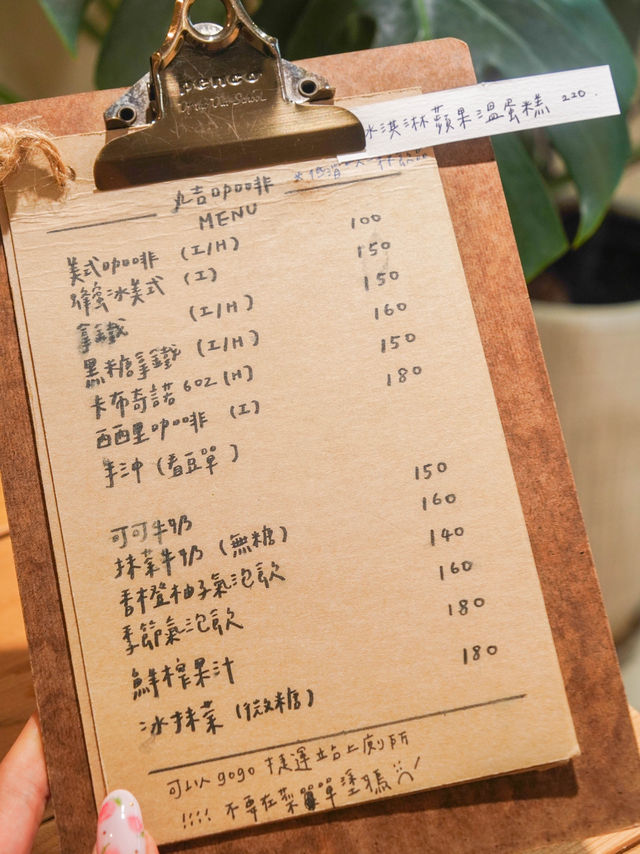 penco
冰淇淋蘋果溫蛋糕 220.
丸吉咖啡
MENU
美式咖啡 (I/H) 100
蜂蜜冰美式 (I) 150
拿鐵 (I/H) 150
黑糖拿鐵 (I/H) 160
卡布奇諾 6oz (H) 150
西西里咖啡 (I) 180
手沖 (看豆單)
可可牛奶 150
抹茶牛奶 (無糖) 160
香橙柚子氣泡飲 140
季節氣泡飲 160
鮮榨果汁 180
冰抹茶 (微糖) 180
可以 gogo 捷運站上廁所
!!!! 不要在菜單單塗鴉